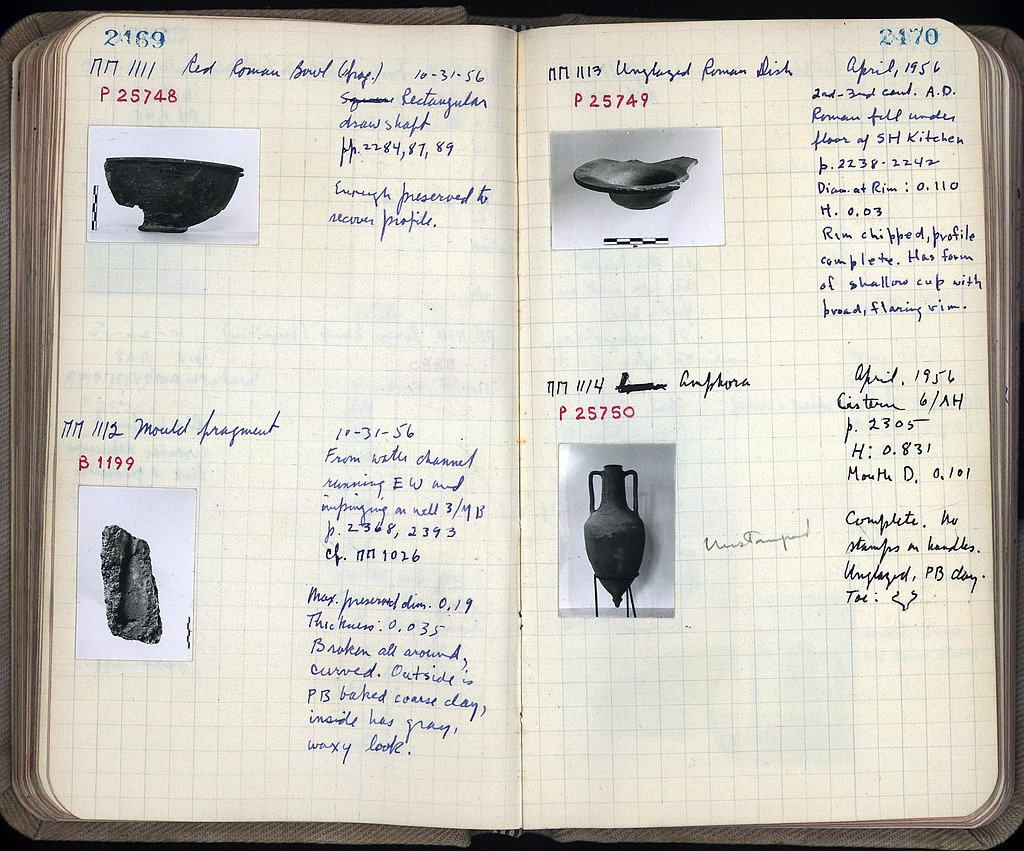 2469
ΠΠ 1111 Red Roman Bowl (frag.) 10-31-56
P 25748
Square Rectangular
draw shaft
pp. 2284, 87, 89
Enough preserved to
recover profile.
ΠΠ 1112 Mould fragment
B 1199
10-31-56
From water channel
running EW and
impinging on well 3/ΜΒ
p. 2368, 2393
cf. ΠΠ 1026
Max. preserved dim. 0.19
Thickness: 0.035
Broken all around,
curved. Outside is
PB baked coarse clay,
inside has gray,
waxy look.
2470
ΠΠ 1113 Unglazed Roman Dish April, 1956
P 25749
2nd-3rd cent. A.D.
Roman fill under
floor of SH Kitchen
p. 2238-2242
Diam. at Rim: 0.110
H. 0.03
Rim chipped, profile
complete. Has form
of shallow cup with
broad, flaring rim.
ΠΠ 1114 Amphora
P 25750
April, 1956
Cistern 6/ΛΗ
p. 2305
H: 0.831
Mouth D. 0.101
Unstamped
Complete. No
stamps on handles.
Unglazed, PB clay.
Toe: